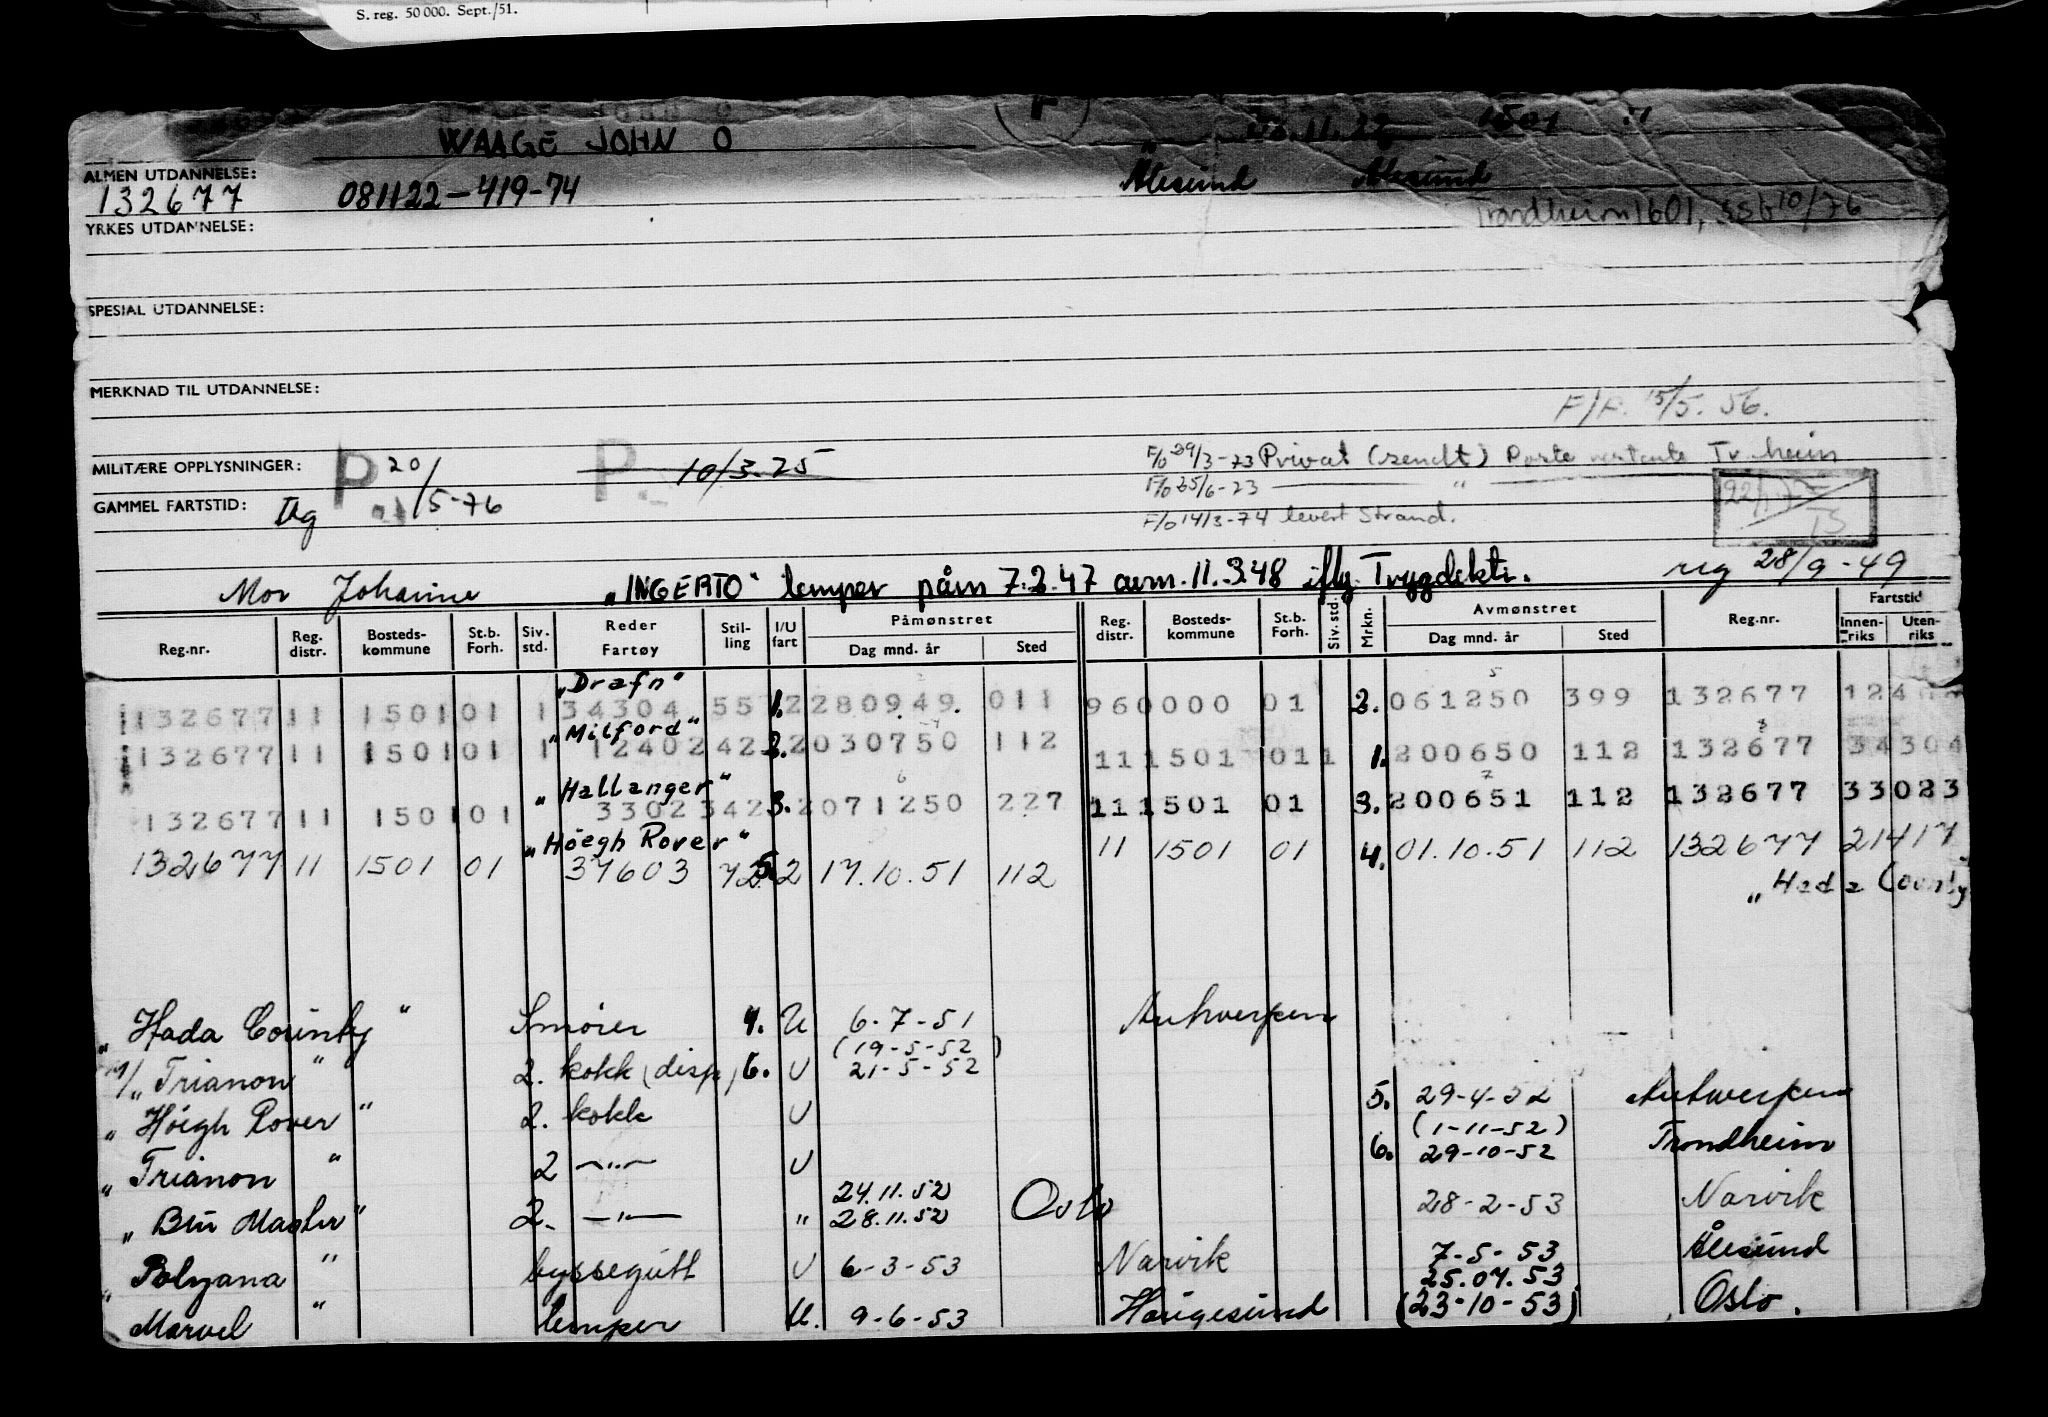 S. reg. 50 000. Sept./51.
WAAGE JOHN O
ALMEN UTDANNELSE: Ålesund Ålesund
132677 081122-419-74
Trondheim 1601, SSB 10/76
YRKES UTDANNELSE:
SPESIAL UTDANNELSE:
MERKNAD TIL UTDANNELSE:
F/P. 15/5. 56.
MILITÆRE OPPLYSNINGER: P 20/5-76 P. 10/3.25
F/o 29/3-73 Privat (sendt) Poste restante Tr.heim
F/o 25/6-73 — " —
GAMMEL FARTSTID:
F/o 14/3-74 levert Strand.
Mor Johanne "INGERTO" lemper påm 7.2.47 avm. 11.3.48 iflg. Trygdektr. reg 28/9-49
Reg.nr. Reg. distr. Bosteds-kommune St.b. Forh. Siv. std. Reder Fartøy Stil-ling I/U fart Påmønstret Dag mnd. år Sted Reg. distr. Bosteds-kommune St.b. Forh. Siv. std. Mrkn. Avmønstret Dag mnd. år Sted Reg.nr. Fartstid Innen-riks Uten-riks
"Drafn"
132677 11 1501 01 1 34304 55 1. 2 280949. 011 960000 01 2. 061250 399 132677 12402
"Milford"
132677 11 1501 01 1 12402 42 2. 2 030750 112 11 1501 01 1 1. 200650 112 132677 34304
"Hallanger"
132677 11 1501 01 33023 42 3. 2 071250 227 11 1501 01 3. 200651 112 132677 33023
"Höegh Rover"
132677 11 1501 01 37603 72 5. 2 17.10.51 112 11 1501 01 4. 01.10.51 112 132677 21417
"Hada County
"Hada County" Smører 4. U 6-7-51 Antwerpen
(19-5-52)
M/"Trianon" 2. kokk (disp) 6. U 21-5-52
"Höegh Rover" 2. kokk U 5. 29-4-52 Antwerpen
(1-11-52)
"Trianon" 2 —"— U 6. 29-10-52 Trondheim
24.11.52
"Blu Master" 2. —"— " 28.11.52 Oslo 28-2-53 Narvik
"Polyana" byssegutt U 6-3-53 Narvik 7-5-53 Ålesund
25.07.53
"Marvel" lemper U. 9-6-53 Haugesund (23-10-53) Oslo.